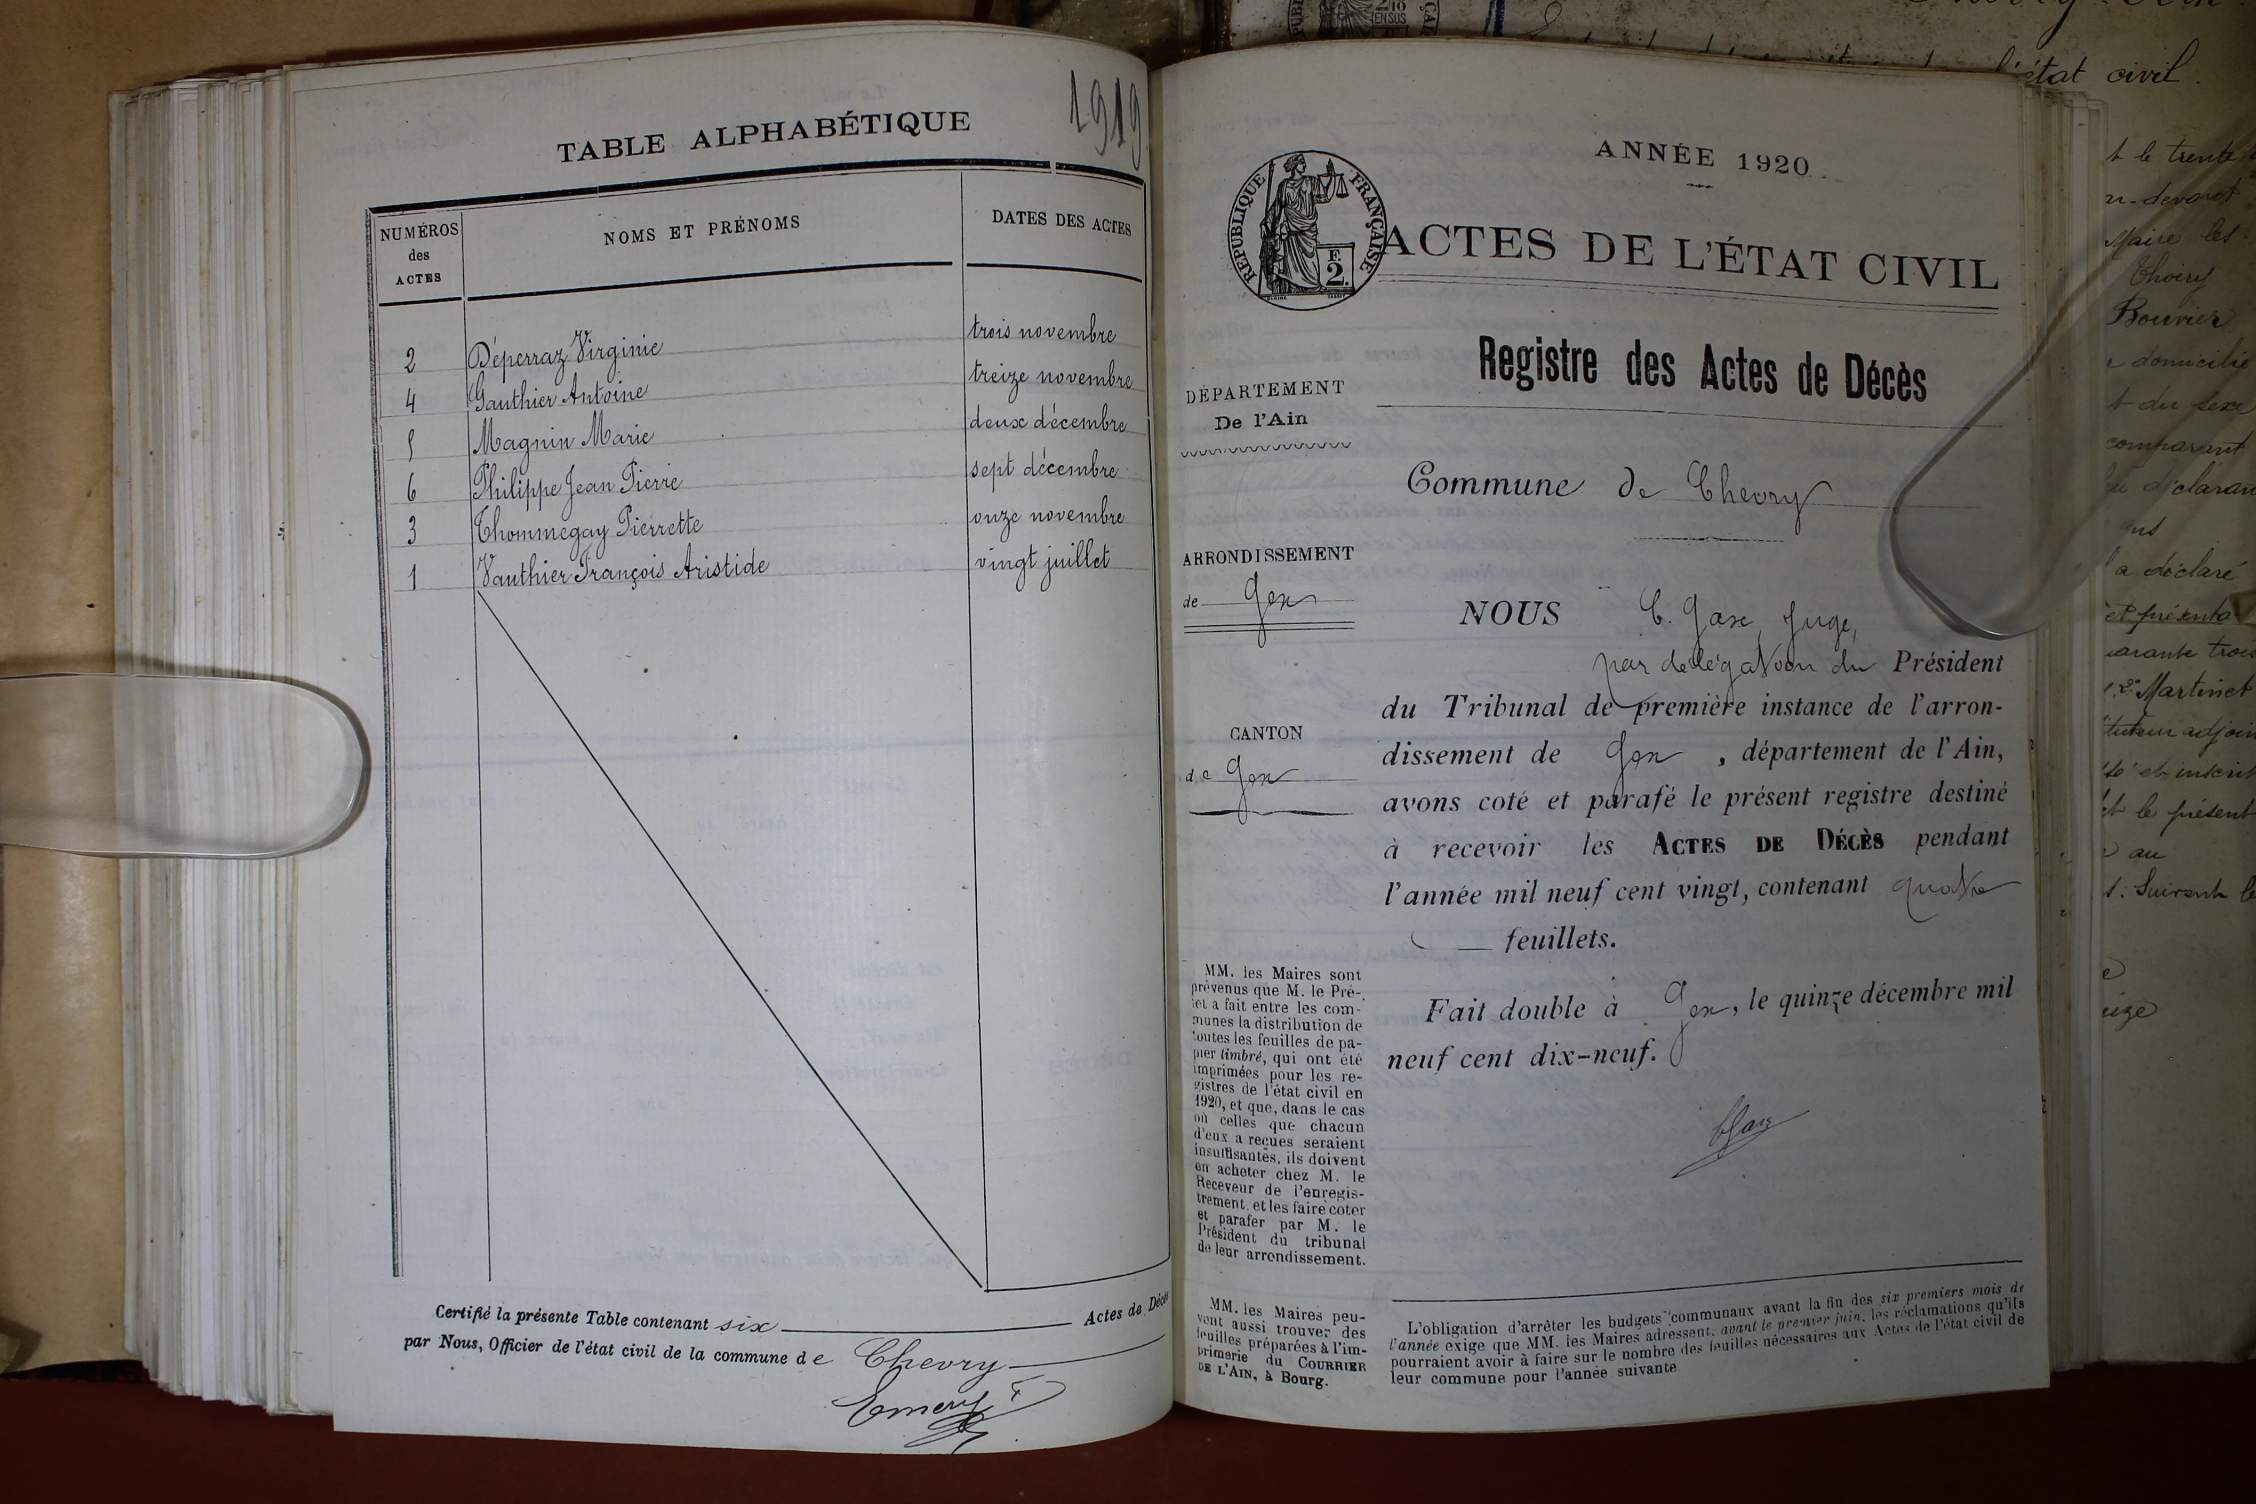 1919
TABLE ALPHABÉTIQUE
NUMÉROS des ACTES
NOMS ET PRÉNOMS
DATES DES ACTES
2 Déperraz Virginie trois novembre
4 Gauthier Antoine treize novembre
5 Magnin Marie deux décembre
6 Philippe Jean Pierre sept décembre
3 Thommegay Pierrette onze novembre
1 Vauthier François Aristide vingt juillet
Certifié la présente Table contenant six Actes de Décès
par Nous, Officier de l'état civil de la commune de Chevry
Emery
ANNÉE 1920
RÉPUBLIQUE FRANÇAISE
F. 2.
ACTES DE L'ÉTAT CIVIL
Registre des Actes de Décès
DÉPARTEMENT
De l'Ain
Commune de Chevry
ARRONDISSEMENT
de Gex
CANTON
de Gex
NOUS C. Gax, Juge,
par délégation du Président
du Tribunal de première instance de l'arron-
dissement de Gex, département de l'Ain,
avons coté et parafé le présent registre destiné
à recevoir les ACTES DE DÉCÈS pendant
l'année mil neuf cent vingt, contenant quatre
feuillets.
Fait double à Gex, le quinze décembre mil
neuf cent dix-neuf.
MM. les Maires sont
prévenus que M. le Pré-
fet a fait entre les com-
munes la distribution de
toutes les feuilles de pa-
pier timbré, qui ont été
imprimées pour les re-
gistres de l'état civil en
1920, et que, dans le cas
où celles que chacun
d'eux a reçues seraient
insuffisantes, ils doivent
en acheter chez M. le
Receveur de l'enregis-
trement, et les faire coter
et parafer par M. le
Président du tribunal
de leur arrondissement.
MM. les Maires peu-
vent aussi trouver des
feuilles préparées à l'im-
primerie du COURRIER
DE L'AIN, à Bourg.
L'obligation d'arrêter les budgets communaux avant la fin des six premiers mois de
l'année exige que MM. les Maires adressent, avant le premier juin, les réclamations qu'ils
pourraient avoir à faire sur le nombre des feuilles nécessaires aux Actes de l'état civil de
leur commune pour l'année suivante
l'état civil.
t le trente
devant
Maire les
Thoiry
Bouvier
domicilié
t du sexe
comparant
déclarant
a déclaré
et présenta
quarante trois
Martinet
adjoin
et inscrit
le présent
au
Suivent le